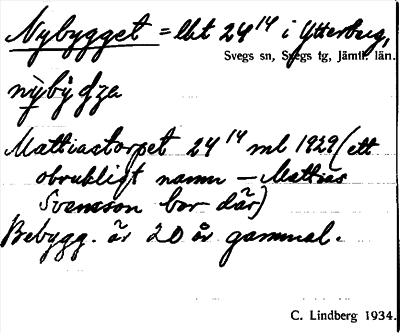 Nybygget = lht 24¹⁴ i Ytterberg,
Svegs sn, Svegs tg, Jämtl. län.
Mattiastorpet 24¹⁴ ml 1929 (ett
obrukligt namn – Mattias
Svensson bor där)
Bebygg. är 20 år gammal.
C. Lindberg 1934.